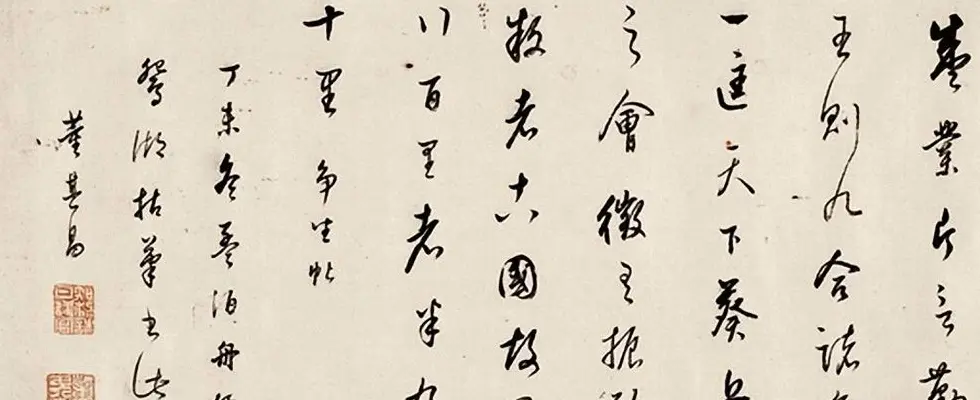 盛業片言勤
王則九合諸
一匡天下葵丘
之會微有振
叛者十六國故
行百里者半九
十里 争坐帖
丁未冬暮泊舟
鴛湖拈筆書此
董其昌